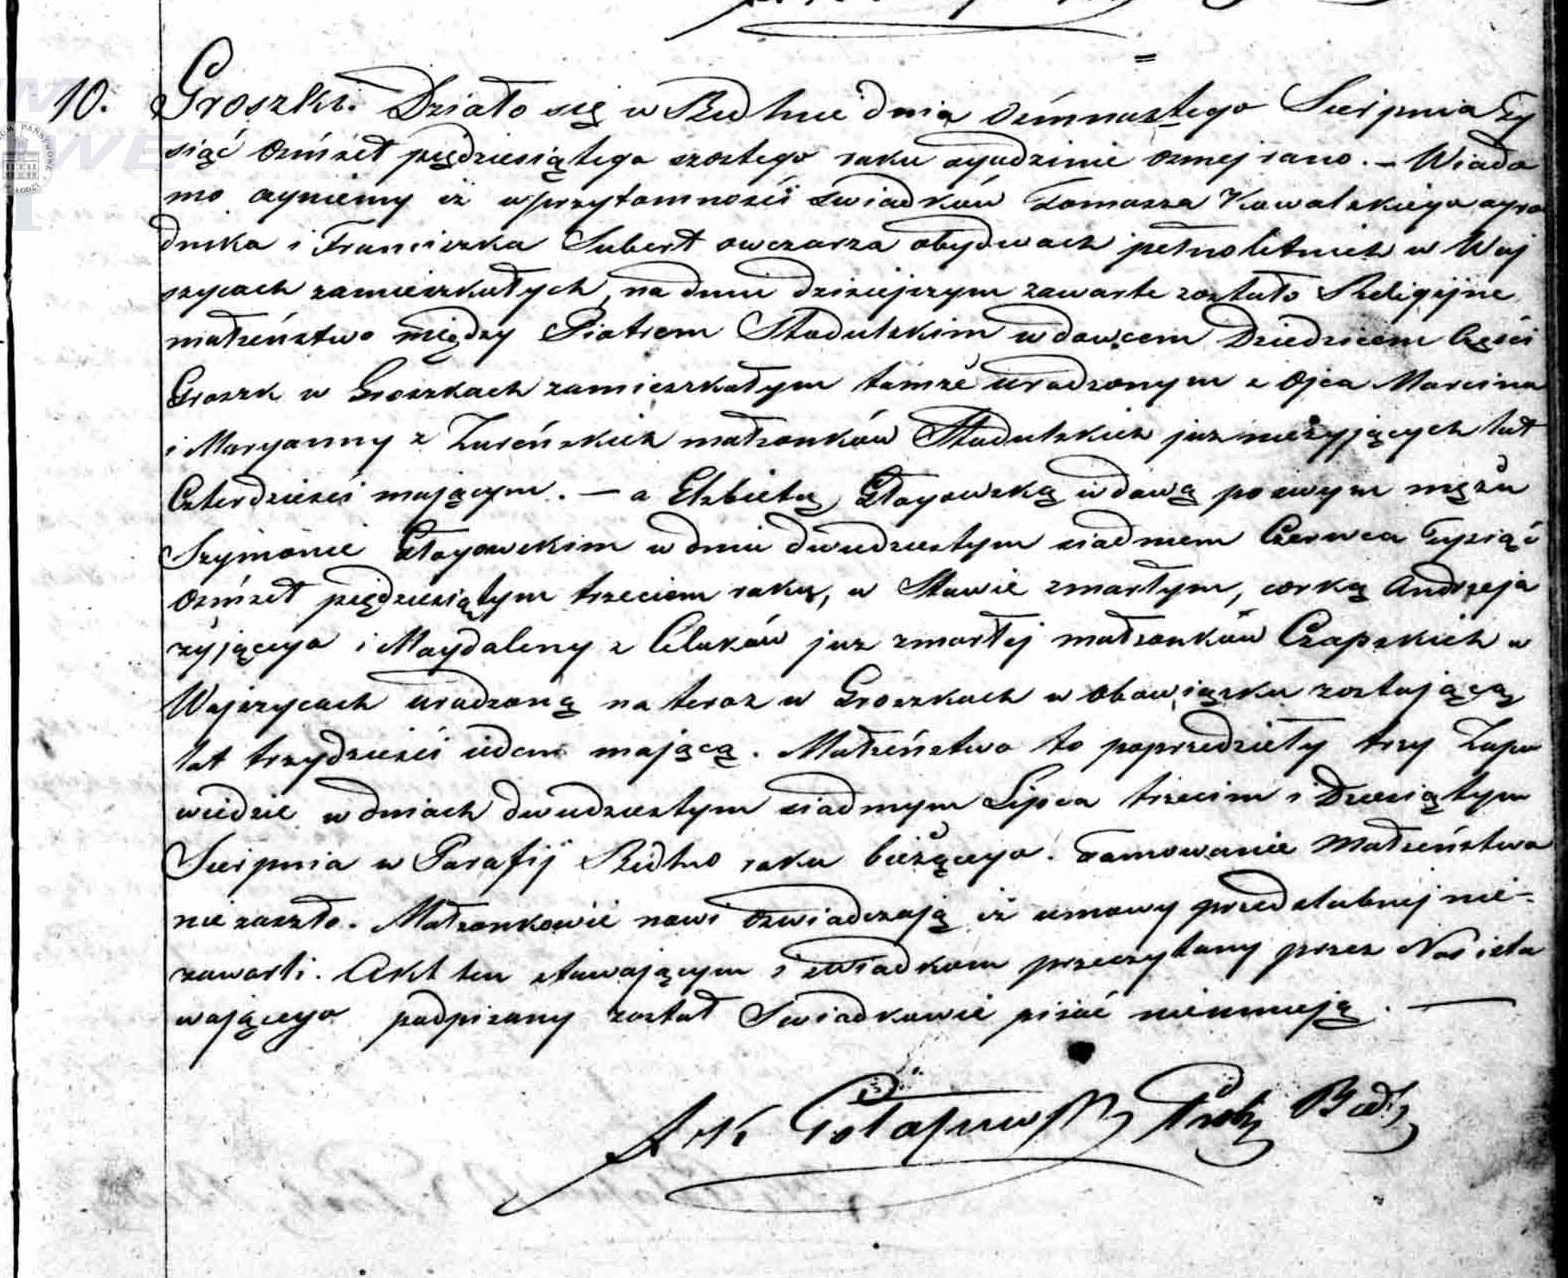 10. Groszki. Działo się w Redlnie dnia ośmnastego Sierpnia Ty
siąć ośmset pięćdziesiątego szostego roku o godzinie osmej rano. – Wiado
mo czyniemy iż w przytomności swiadków Tomasza Kowalskiego ogro
dnika i Franciszka Subert owczarza obydwoch pełnoletnich w Woj
szycach zamieszkałych, na dniu dzisiejszym zawarte zostało Religijne
małżeństwo między Piotrem Stadulskim wdowcem Dziedzicem Części
Groszk w Groszkach zamieszkałym tamże urodzonym z Ojca Marcina
i Maryanny z Zureńskich małżonków Stadulskich juz nieżyjących lat
Czterdzieści mającym. – a Elzbietą Głogowską wdową po swym mężu
Szymonie Głogowskim w dniu dwudziestym siodmem Czerwca Tysiąć
ośmset pięćdziesiątym trzeciem roku, w Stawie zmarłym, corką Andrzeja
żyjącego i Magdaleny z Celuków juz zmarłej małżonków Czapskich w
Wojszycach urodzoną na teraz w Groszkach w obowiązku zostającą
lat trzydzieści siedem mającą. Małżeństwo to poprzedziły trzy Zapo
wiedzie w dniach dwudziestym siodmym Lipca trzecim i Dziesiątym
Sierpnia w Parafij Redlno roku bieżącego. Tamowanie Małżeństwa
nie zaszło. Małżonkowie nowi oświadczają iż umowy przedslubnej nie-
zawarli. Akt ten stawającym i swiadkom przeczytany przez Nas i sta
wającego podpisany został Swiadkowie pisać nieumieją. —